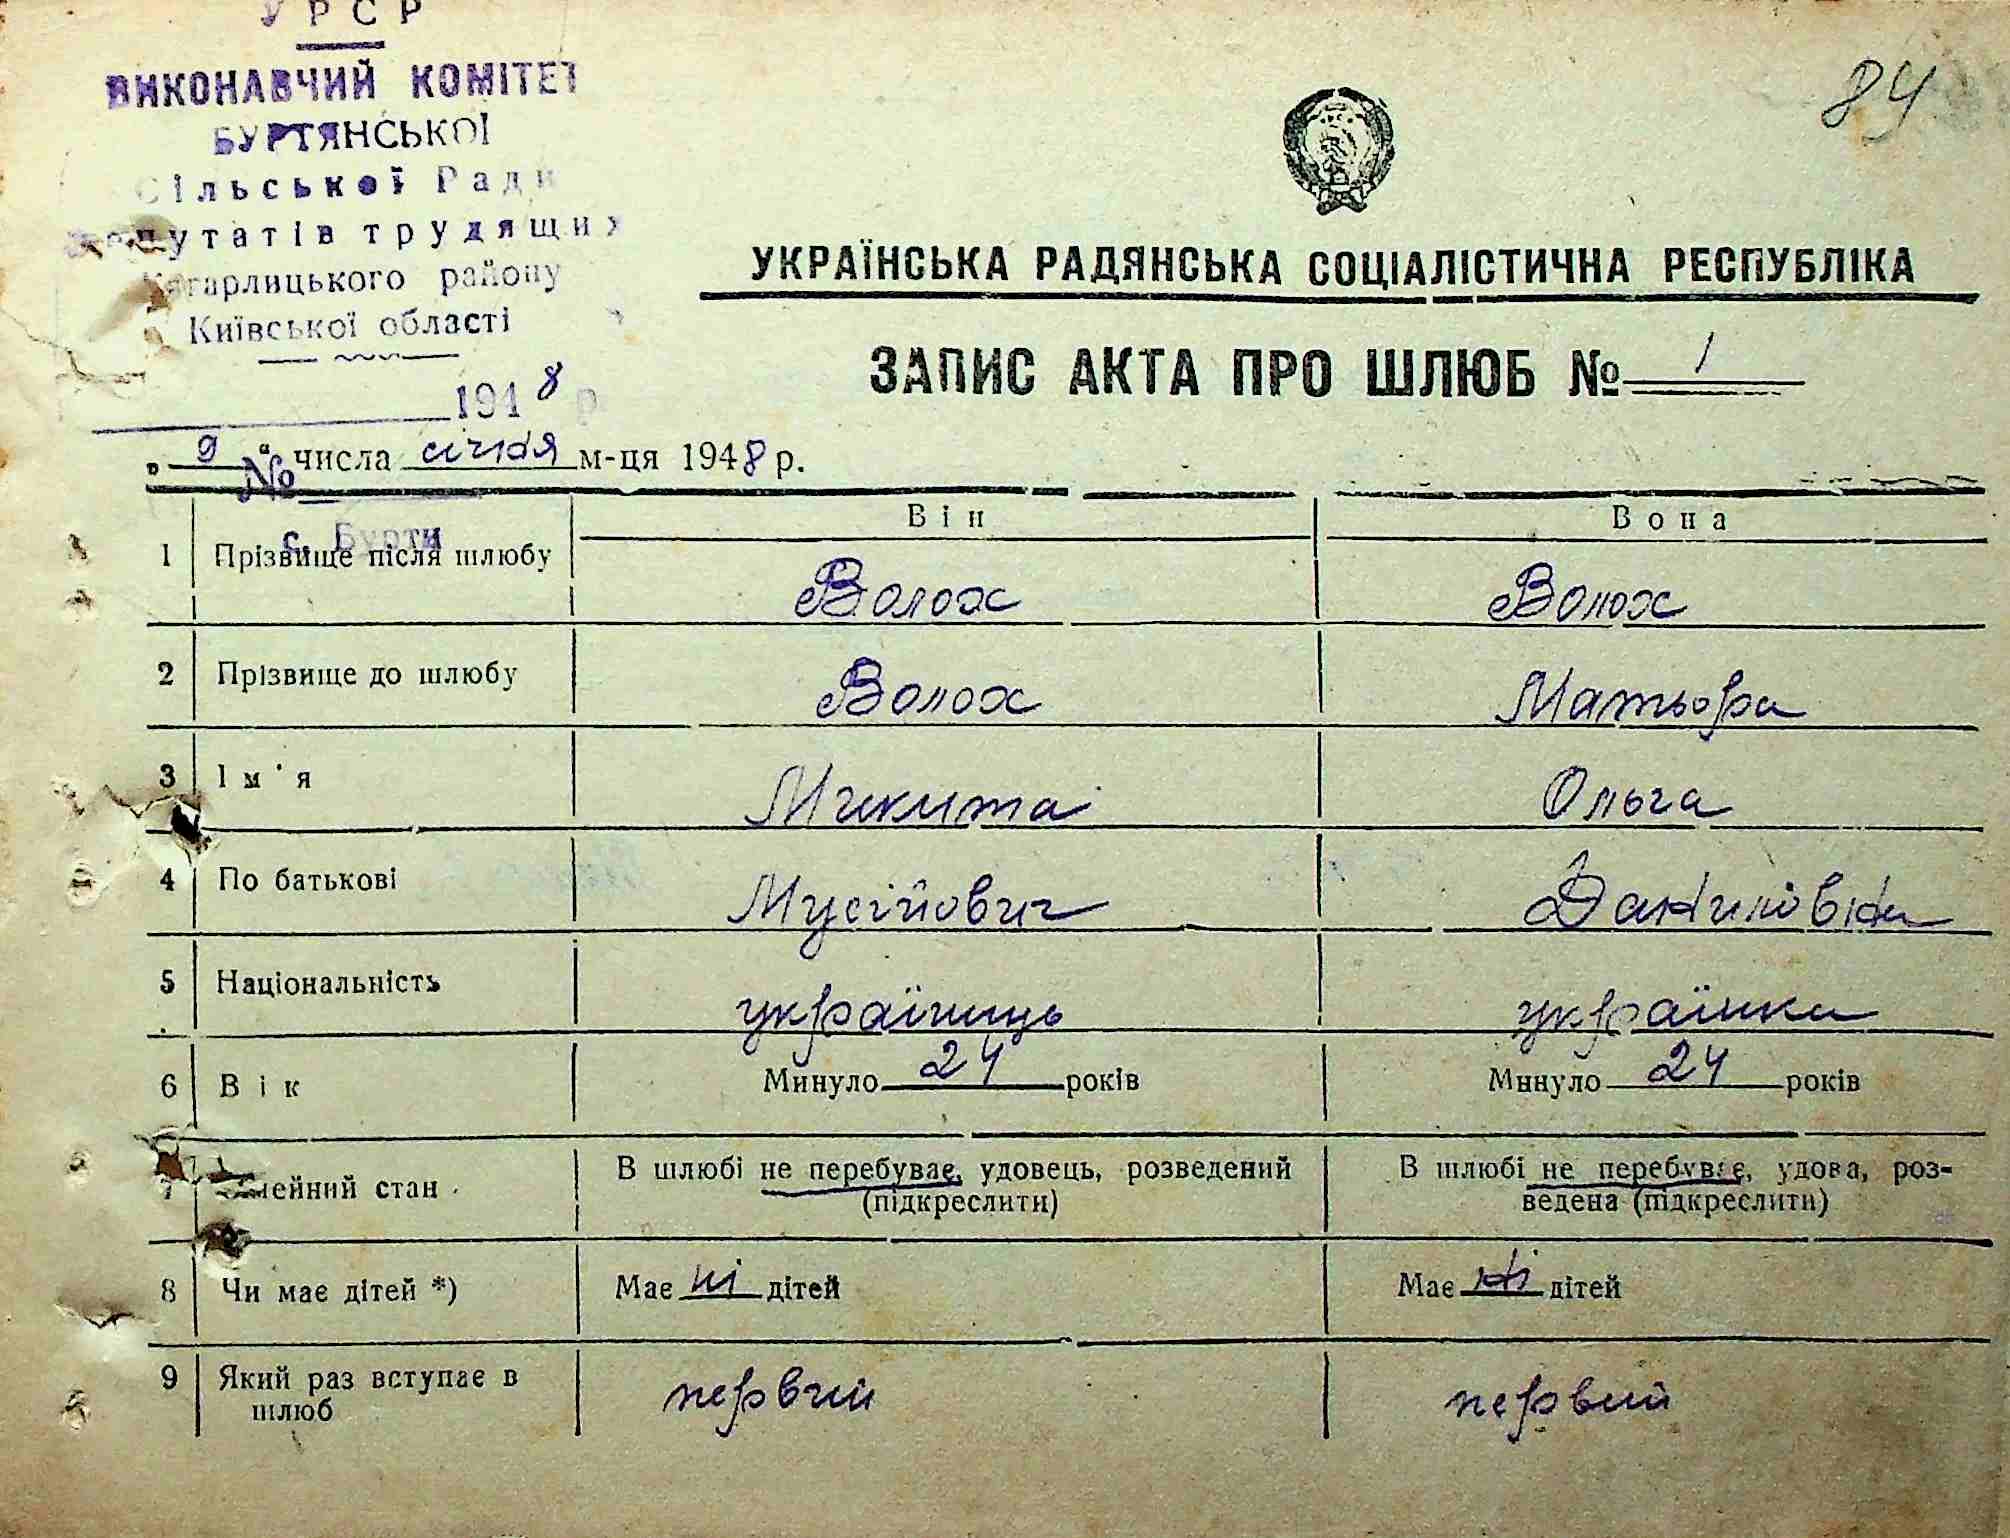 УРСР
ВИКОНАВЧИЙ КОМІТЕТ
БУРТЯНСЬКОЇ
Сільської Ради
депутатів трудящих
Кагарлицького району
Київської області
1948 р.
№
с. Бурти
84
УКРАЇНСЬКА РАДЯНСЬКА СОЦІАЛІСТИЧНА РЕСПУБЛІКА
ЗАПИС АКТА ПРО ШЛЮБ № 1
„ 9 “ числа січня м-ця 1948 р.
Він Вона
1 Прізвище після шлюбу Волох Волох
2 Прізвище до шлюбу Волох Матьора
3 Ім'я Микита Ольга
4 По батькові Мусійович Данилівна
5 Національність українець українка
6 Вік Минуло 24 років Минуло 24 років
7 Сімейний стан В шлюбі не перебуває, удовець, розведений (підкреслити) В шлюбі не перебуває, удова, роз-
ведена (підкреслити)
8 Чи має дітей *) Має ні дітей Має ні дітей
9 Який раз вступає в шлюб первий первий